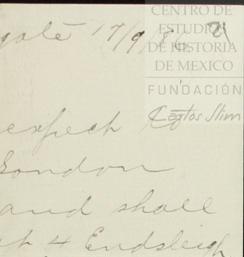 CENTRO DE
ESTUDIOS
DE HISTORIA
DE MEXICO
FUNDACIÓN
Carlos Slim
gate 17/9/86
expect
London
and shall
at 4 Endsleigh